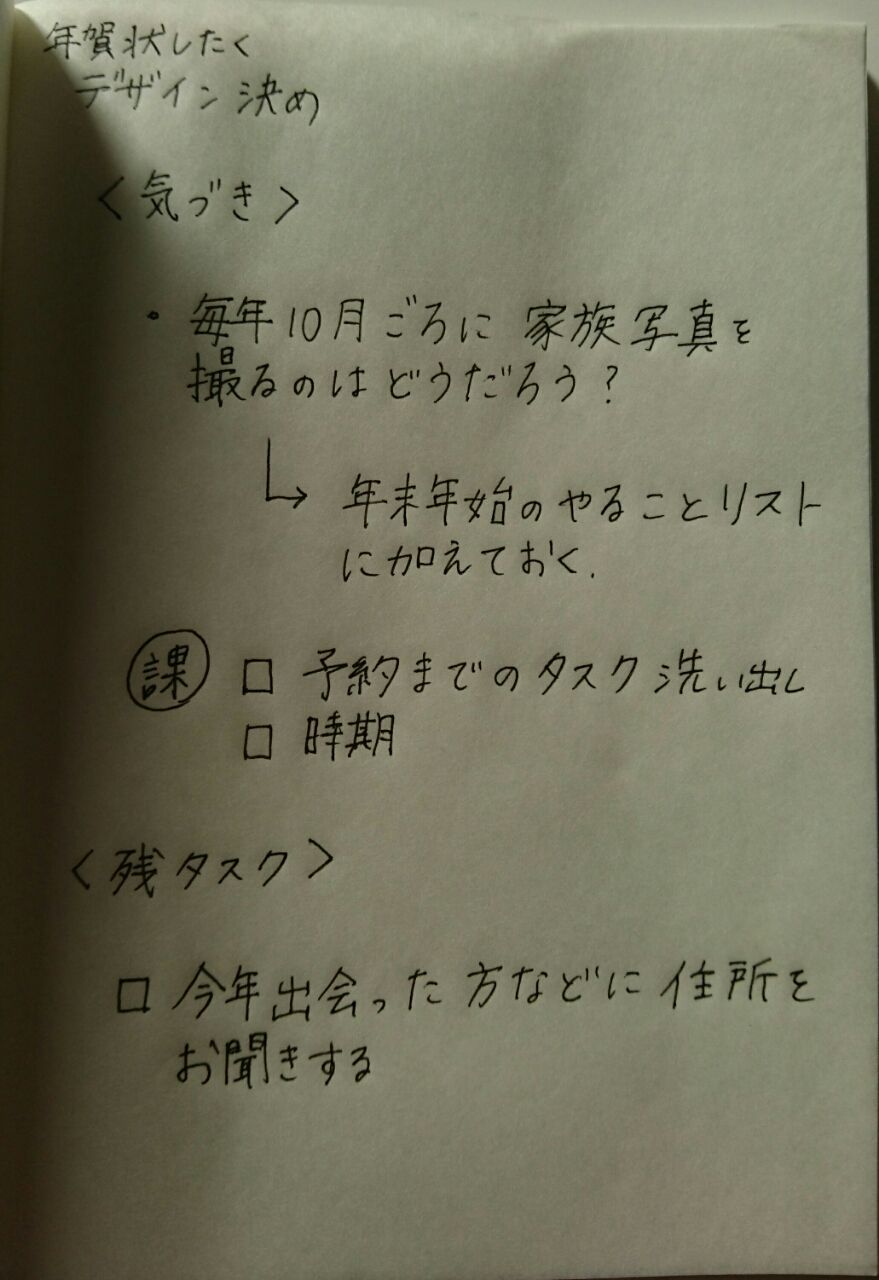 年賀状したく
デザイン決め
<気づき>
・毎年10月ごろに家族写真を
撮るのはどうだろう?
↳ 年末年始のやることリスト
に加えておく.
課 □ 予約までのタスク洗い出し
□ 時期
<残タスク>
□ 今年出会った方などに住所を
お聞きする